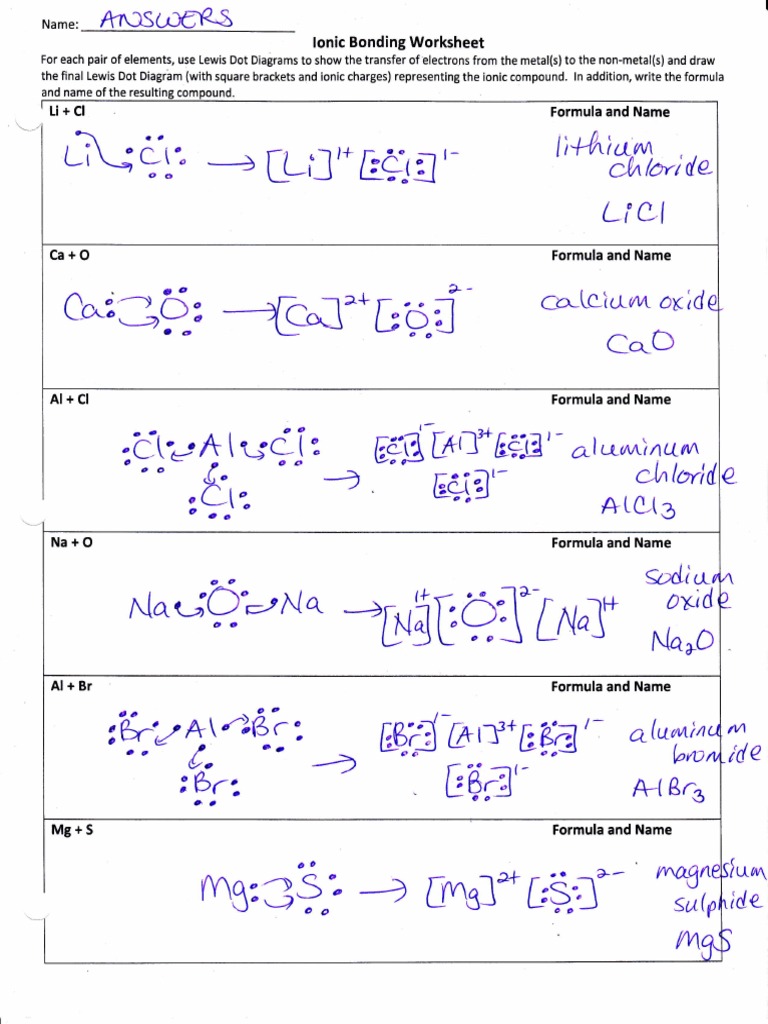 Name: ANSWERS
Ionic Bonding Worksheet
For each pair of elements, use Lewis Dot Diagrams to show the transfer of electrons from the metal(s) to the non-metal(s) and draw
the final Lewis Dot Diagram (with square brackets and ionic charges) representing the ionic compound. In addition, write the formula
and name of the resulting compound.
Li + Cl Formula and Name
Li Cl → [Li]¹⁺ [Cl]¹⁻ lithium
chloride
LiCl
Ca + O Formula and Name
Ca O → [Ca]²⁺ [O]²⁻ calcium oxide
CaO
Al + Cl Formula and Name
Cl Al Cl → [Cl]¹⁻ [Al]³⁺ [Cl]¹⁻ aluminum
Cl [Cl]¹⁻ chloride
AlCl₃
Na + O Formula and Name
Na O Na → [Na]¹⁺ [O]²⁻ [Na]¹⁺ sodium
oxide
Na₂O
Al + Br Formula and Name
Br Al Br → [Br]¹⁻ [Al]³⁺ [Br]¹⁻ aluminum
Br [Br]¹⁻ bromide
AlBr₃
Mg + S Formula and Name
Mg S → [Mg]²⁺ [S]²⁻ magnesium
sulphide
MgS